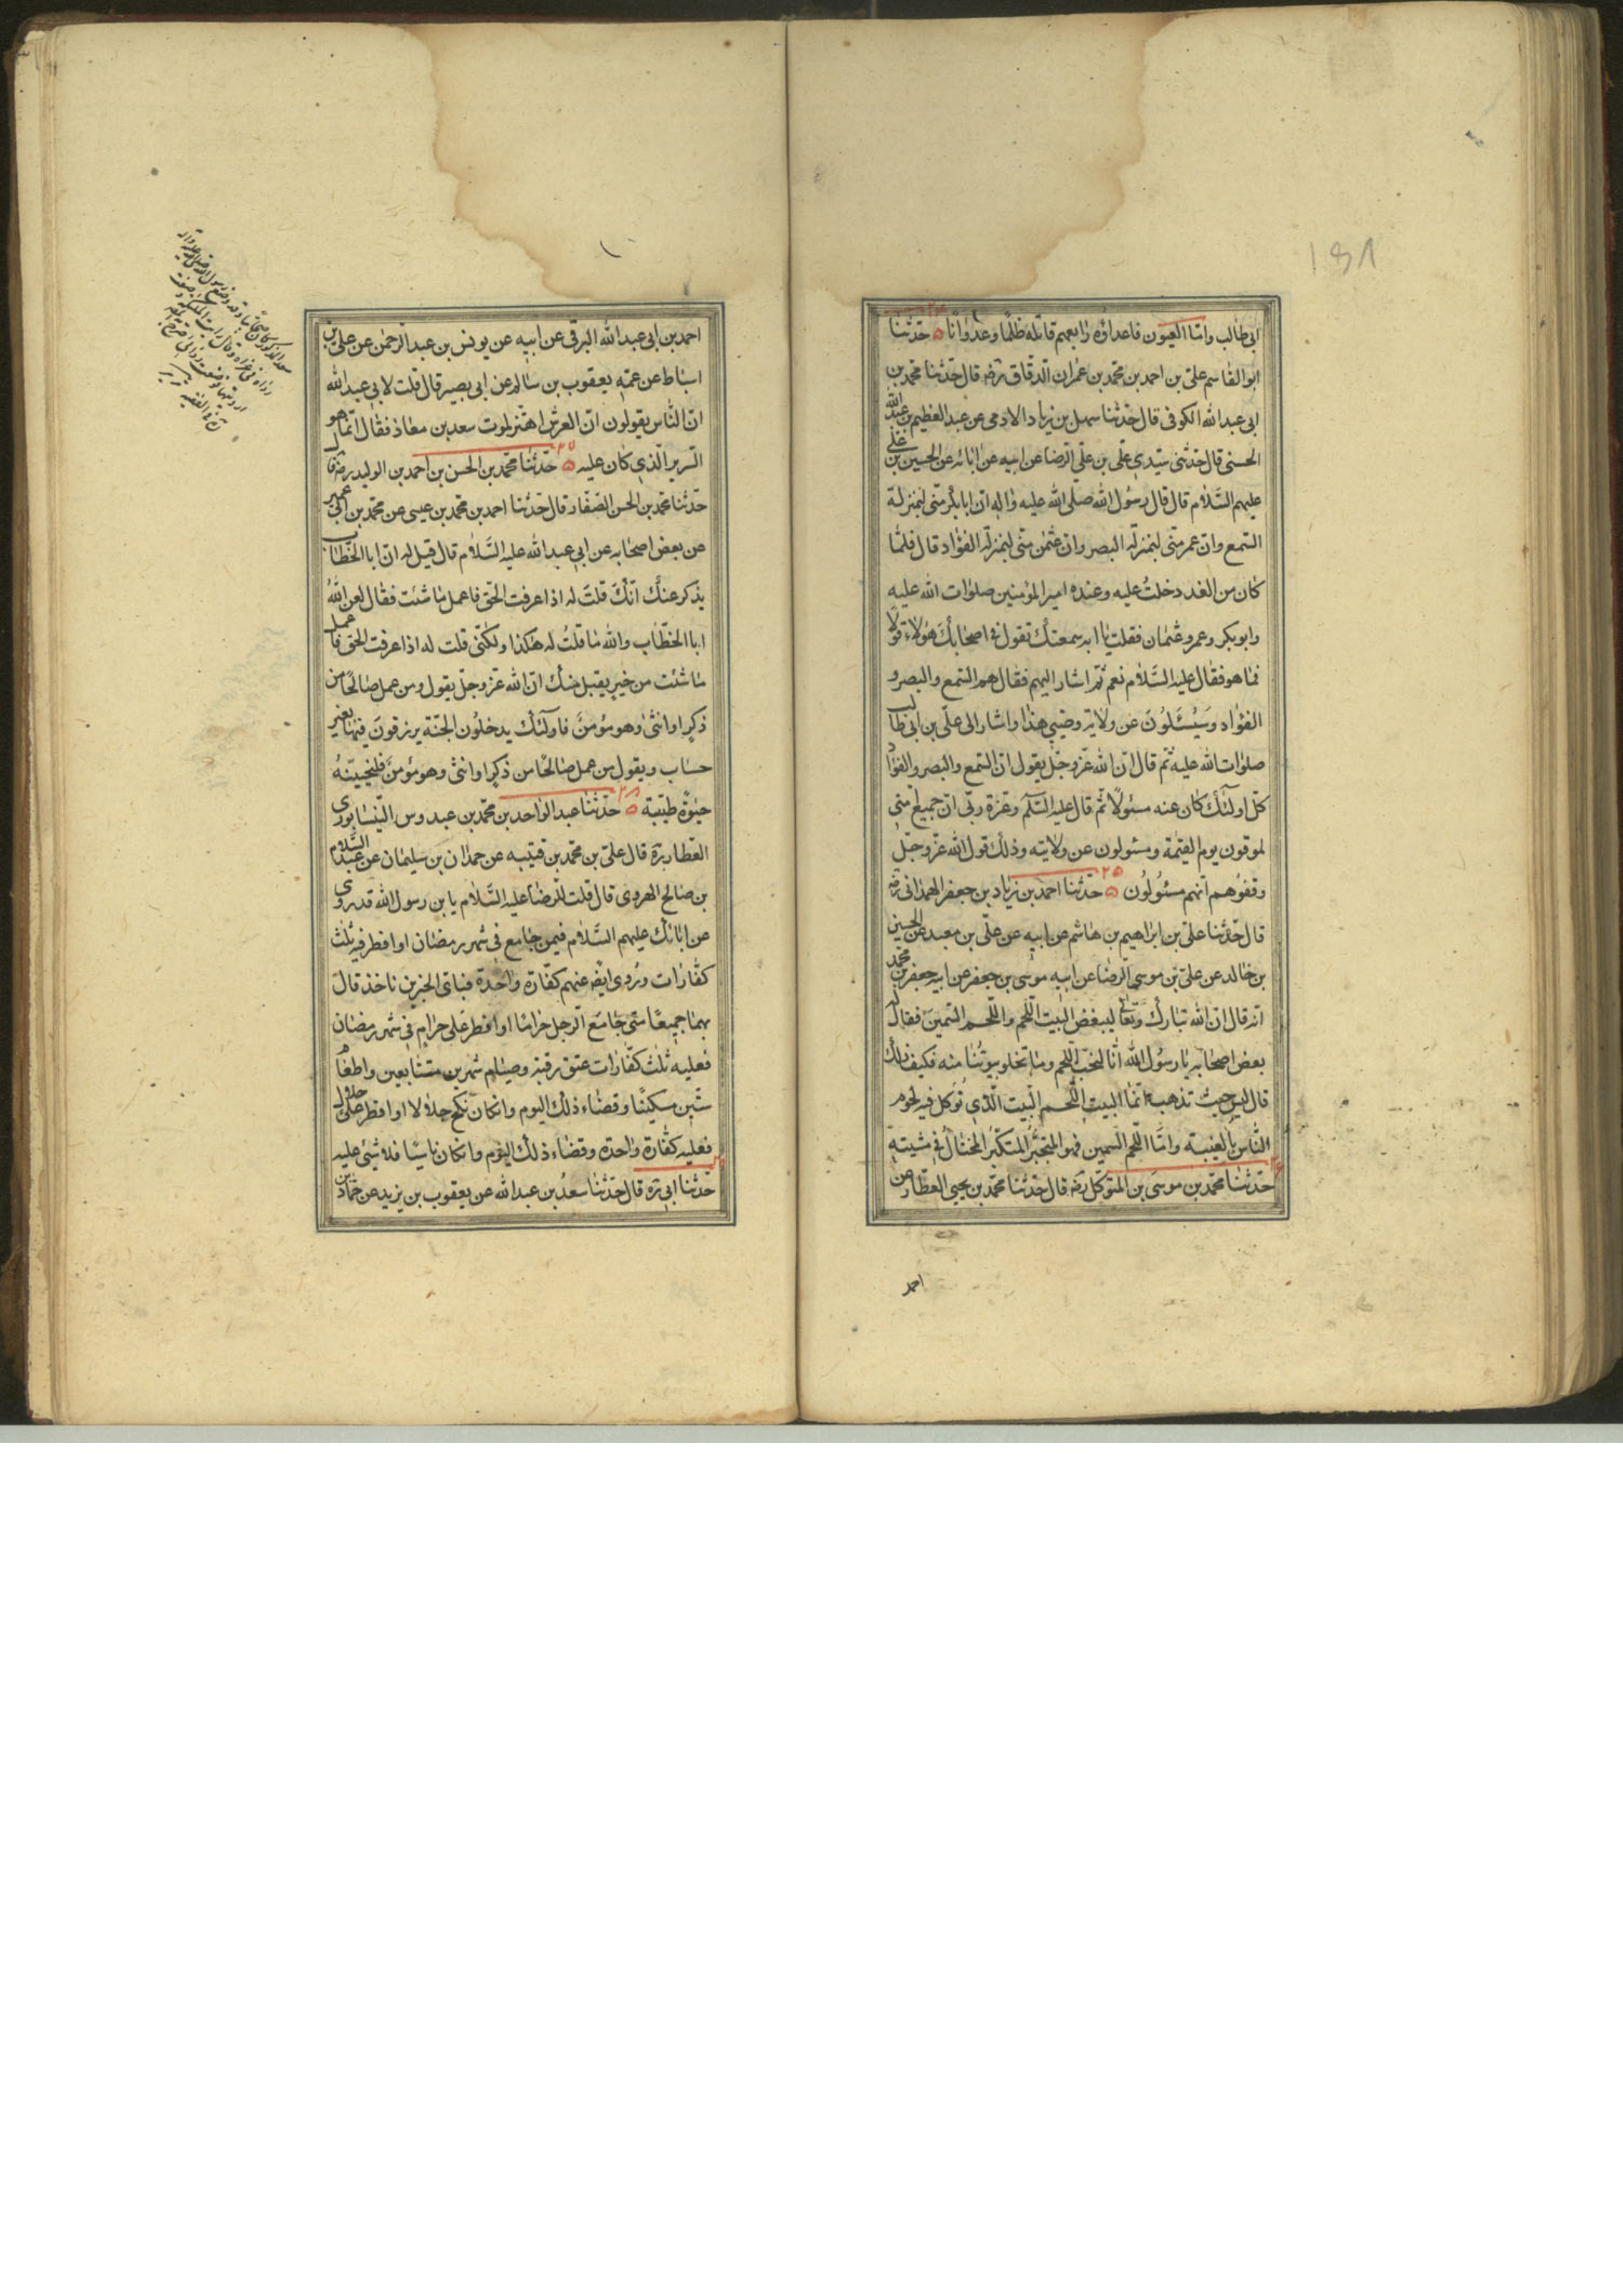 ابى طالب وامّا العيون فاعداؤه رابعهم قاتله ظلمًا وعدوانًا ۲۴ حدّثنا
ابو القاسم على بن احمد بن محمّد بن عمران الدّقاق رضه قال حدّثنا محمّد بن
ابى عبد الله الكوفى قال حدّثنا سهل بن زياد الادمى عن عبد العظيم بن عبد الله
الحسنى قال حدّثنى سيّدى علّى بن على الرضا عن ابيه عن ابائه عن الحسين بن على
عليهم السّلام قال قال رسول الله صلى الله عليه واله ان ابا بكر منّى لبمنزلة
السّمع وان عمر منّى لبمنزلة البصر وان عثمن منّى لبمنزلة الفؤاد قال فلمّا
كان من الغد دخلت عليه وعنده امير المؤمنين صلوات الله عليه
وابو بكر وعمر وعثمان فقلت يا ابه سمعتك تقول فى اصحابك هؤلاء قولًا
فما هو فقال عليه السّلام نعم ثمّ اشار اليهم فقال هم السّمع والبصر و
الفؤاد وسيُسئلون عن ولاية وصيى هذا واشار الى علّى بن ابى طالب
صلوات الله عليه ثمّ قال ان الله عزّ وجلّ يقول ان السّمع والبصر والفؤاد
كلّ اولئك كان عنه مسئولًا ثمّ قال عليه السّلم وعزة ربّى انّ جميع امّتى
لموقوفون يوم القيٰمة ومسئولون عن ولايته وذلك قول الله عزّ وجلّ
وقفوهم انّهم مسئولون ۲۵ حدّثنا احمد بن زياد بن جعفر الهمدانى رضه
قال حدّثنا على بن ابراهيم بن هاشم عن ابيه عن علّى بن معبد عن الحسين
بن خالد عن علىّ بن موسى الرضا عن ابيه موسى بن جعفر عن ابيه جعفر بن محمّد
انه قال ان الله تبارك وتعالى ليبغض البيت اللّحم واللّحم السّمين فقال له
بعض اصحابه يا رسول الله انّا لنحبّ اللّحم وما تخلو بيوتنا منه فكيف ذلك
قال ليس حيث تذهب انّما البيت اللّحم البيت الّذى تؤكل فيه لحوم
النّاس بالغيبة وامّا اللّحم السمين فهو المتجبّر المتكبّر المختال فى مشيته ۲۶
حدّثنا محمّد بن موسى بن المتوكل رضه قال حدّثنا محمّد بن يحيى العطّار عن
احمد
احمد بن ابى عبد الله البرقى عن ابيه عن يونس بن عبد الرحمن عن على بن
اسباط عن عمّه يعقوب بن سالم عن ابى بصير قال قلت لابى عبد الله
انّ النّاس يقولون انّ العرش اهتز لموت سعد بن معاذ فقال انّما هو
السرير الّذى كان عليه ۲۷ حدّثنا محمّد بن الحسن بن احمد بن الوليد رضه قال
حدّثنا محمّد بن الحسن الصفّار قال حدّثنا احمد بن محمّد بن عيسى عن محمّد بن ابى عمير
عن بعض اصحابه عن ابى عبد الله عليه السّلام قال قيل له ان ابا الخطّاب
يذكر عنك انّك قلت له اذا عرفت الحقّ فاعمل ما شئت فقال لعن الله
ابا الخطّاب والله ما قلت له هكذا ولكنّى قلت له اذا عرفت الحق فاعمل
ما شئت من خير يقبل منك ان الله عزّ وجلّ يقول ومن عمل صالحًا من
ذكر او انثى وهو مؤمن فاولئك يدخلون الجنّة يرزقون فيها بغير
حساب ويقول من عمل صالحًا من ذكر او انثى وهو مؤمن فلنحيينّه
حيٰوة طيّبة ۲۸ حدّثنا عبد الواحد بن محمّد بن عبدوس النّيسابورى
العطار ره قال على بن محمّد بن قتيبه عن حمدان بن سليمان عن عبد السّلام
بن صالح الهروى قال قلت للرضا عليه السّلام يا بن رسول الله قد روى
عن ابائك عليهم السّلام فيمن جامع فى شهر رمضان او افطر فيه ثلث
كفّارات وروى ايضًا عنهم كفّارة واحدة فباىّ الخبرين ناخذ قال
بهما جميعًا متى جامع الرجل حرامًا او افطر على حرام فى شهر رمضان
فعليه ثلث كفّارات عتق رقبة وصيام شهرين متتابعين واطعام
ستّين مسكينًا وقضاء ذلك اليوم وان كان نكح حلالا او افطر على حلال
فعليه كفّارة واحدة وقضاء ذلك اليوم وان كان ناسيًا فلا شئ عليه ۲۹
حدّثنا ابى ره قال حدّثنا سعد بن عبد الله عن يعقوب بن يزيد عن حمّاد بن